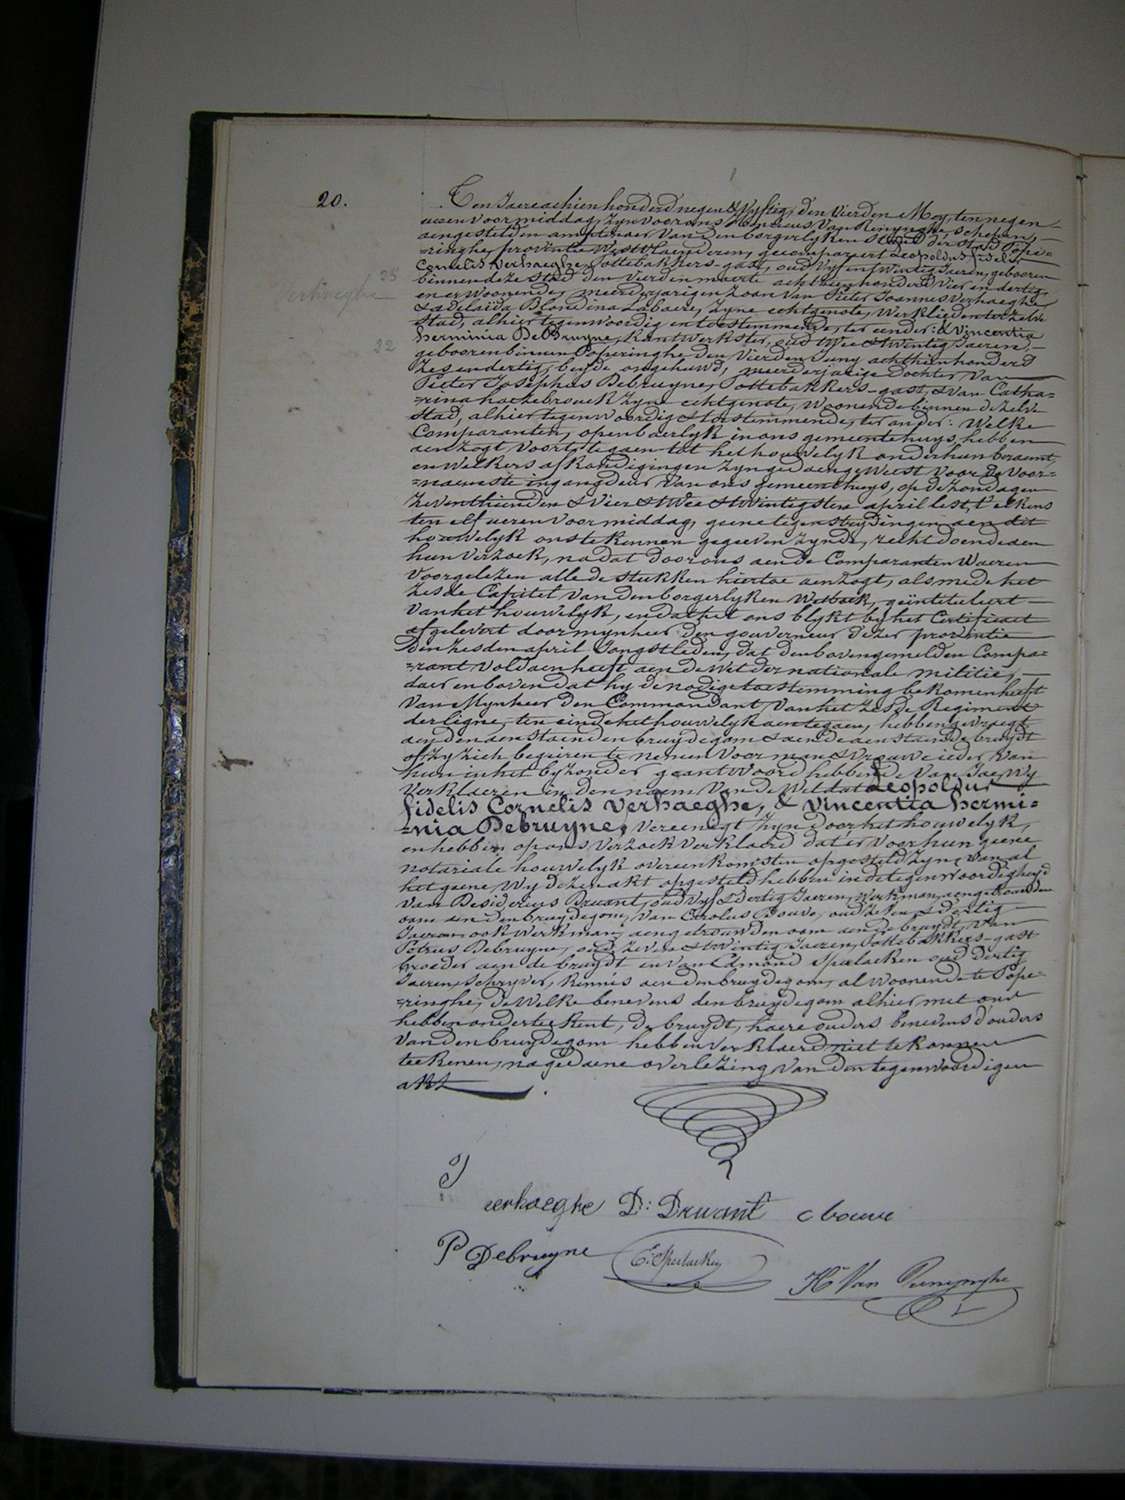 20.
Ten Jaere achtienhonderd negen & vyftig, den vierden Mey, ten negen
ueren voormiddag, zyn voor ons Henricus Van Renynghe, schepen,
aengestelden amptenaer van den borgerlyken Stand der stad Pope-
-ringhe, provintie Westvlaenderen, gecompareert Leopoldus fidelis
Cornelis Verhaeghe, pottebakkers-gast, oud vyf en twintig Jaeren, gebooren
25
binnen deze stad den vierden maerte achttienhonderd vier en dertig,
Verhaeghe
en er woonende, meerderjarigen zoon van Pieter Joannes Verhaeghe
& Adelaïda Blondina Labaere, zyne echtgenote, Werklieden ter zelve
stad, alhier tegenwoordig en toestemmende, ter eender: & Vincentia
herminia DeBruyne, kantwerkster, oud twee & twintig Jaeren,
22
gebooren binnen Poperinghe den vierden Juny achthienhonderd
zes en dertig, beyde ongehuwd, meerderjarige dochter van
Pieter Josephus Debruyne, pottebakkers-gast, & van Catha-
-rina hockebrouck zyne echtgenote, woonende binnen de zelve
stad, alhier tegenwoordig & toestemmende, ter ander: Welke
Comparanten, openbaerlyk in ons gemeentehuys, hebben
aenzogt voorts te gaen tot het houwelyk onder hun beraemt,
en welkers afkondigingen zyn gedaen geweest voor de voor-
-naemste ingangdeur van ons gemeentehuys, op de zondagen
zeventhienden & vier & twintigsten april lest, t'elkens
ten elf ueren voormiddag, geene tegenstrydingen aen dit
houwelyk ons te kennen gegeven zynde, recht doende aen
hun verzoek, na dat door ons aen de Comparanten waeren
voorgelezen alle de stukken hiertoe aenzogt, als mede het
zesde Capitel van den borgerlyken Wetboek, geïntituleert
van het houwelyk, en dat het ons blykt by het Certificaet
afgelevert door mynheer den gouverneur dezer provintie
den zesden april Jongstleden, dat den bovengemelden Compa-
-rant voldaen heeft aen de wet der nationale militie,
daer en boven dat hy de nodige toestemming bekomen heeft
van Mynheer den Commandant van het zesde Regiment
der ligne, ten einde het houwelyk aen te gaen, hebben gevraegt
aen den aenstaenden bruydegom & aen de aenstaende bruydt
of zy zich begeiren te nemen voor man & vrouwe ieder van
hun in het byzonder geantwoord hebbende van Jae, Wy
verklaeren in den naem van de wet dat Leopoldus
fidelis Cornelis Verhaeghe, & Vincentia hermi-
-nia Debruyne, vereenegt zyn door het houwelyk,
en hebben op ons verzoek verklaerd dat er voor hun geene
notariale houwelyk overeenkomsten opgesteld zyn, van al
het geene Wy dezen akt opgesteld hebben in de tegenwoordigheyd
van Desiderius Druant, oud vyf & dertig Jaeren, werkman, aengetrouwden
oom aen den bruydegom, van Carolus Bouve, oud zeven & dertig
Jaeren ook werkman, aengetrouwden oom aen de bruydt, van
Petrus Debruyne, oud zeven & twintig Jaeren, pottebakkers-gast
broeder aen de bruydt en van Edmond Speelacken oud dertig
Jaeren, schryver, kennis aen den bruydegom, al woonende te Pope-
-ringhe, de welke benevens den bruydegom alhier met ons
hebben onderteekent, de bruydt, haere ouders benevens d'ouders
van den bruydegom hebben verklaerd niet te konnen
teekenen, na gedaene overlezing van den tegenwoordigen
akt.
Verhaeghe D: Druant c bouve
P Debruyne E. Speelacken
Hri Van Renynghe